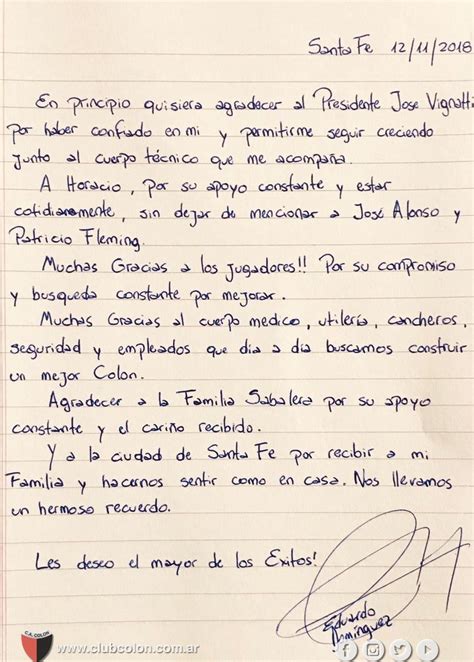 Santa Fe 12/11/2018
En principio quisiera agradecer al Presidente Jose Vignatti
por haber confiado en mi y permitirme seguir creciendo
junto al cuerpo técnico que me acompaña.
A Horacio, por su apoyo constante y estar
cotidianamente, sin dejar de mencionar a José Alonso y
Patricio Fleming.
Muchas Gracias a los jugadores!! Por su compromiso
y busqueda constante por mejorar.
Muchas Gracias al cuerpo medico, utilería, cancheros,
seguridad y empleados que dia a dia buscamos construir
un mejor Colon.
Agradecer a la Familia Sabalera por su apoyo
constante y el cariño recibido.
Y a la ciudad de Santa Fe por recibir a mi
Familia y hacernos sentir como en casa. Nos llevamos
un hermoso recuerdo.
Les deseo el mayor de los Exitos!
Eduardo
Domínguez
C.A. COLON
www.clubcolon.com.ar